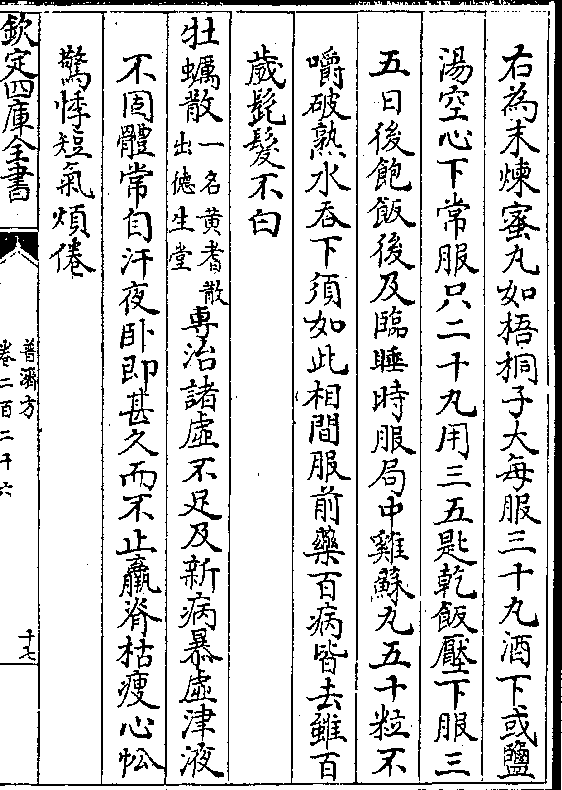 右為末煉蜜丸如梧桐子大每服三十丸酒下或鹽
湯空心下常服只二十丸用三五匙乾飯壓下服三
五日後飽飯後及臨睡時服局中雞蘇丸五十粒不
嚼破熟水吞下須如此相間服前藥百病皆去雖百
歲髭髮不白
牡蠣散一名黄耆散出徳生堂專治諸虛不足及新病暴虛津液
不固體常自汗夜卧即甚久而不止羸脊枯瘦心忪
驚悸短氣煩倦
欽定四庫全書
普濟方
卷二百二十六
十七